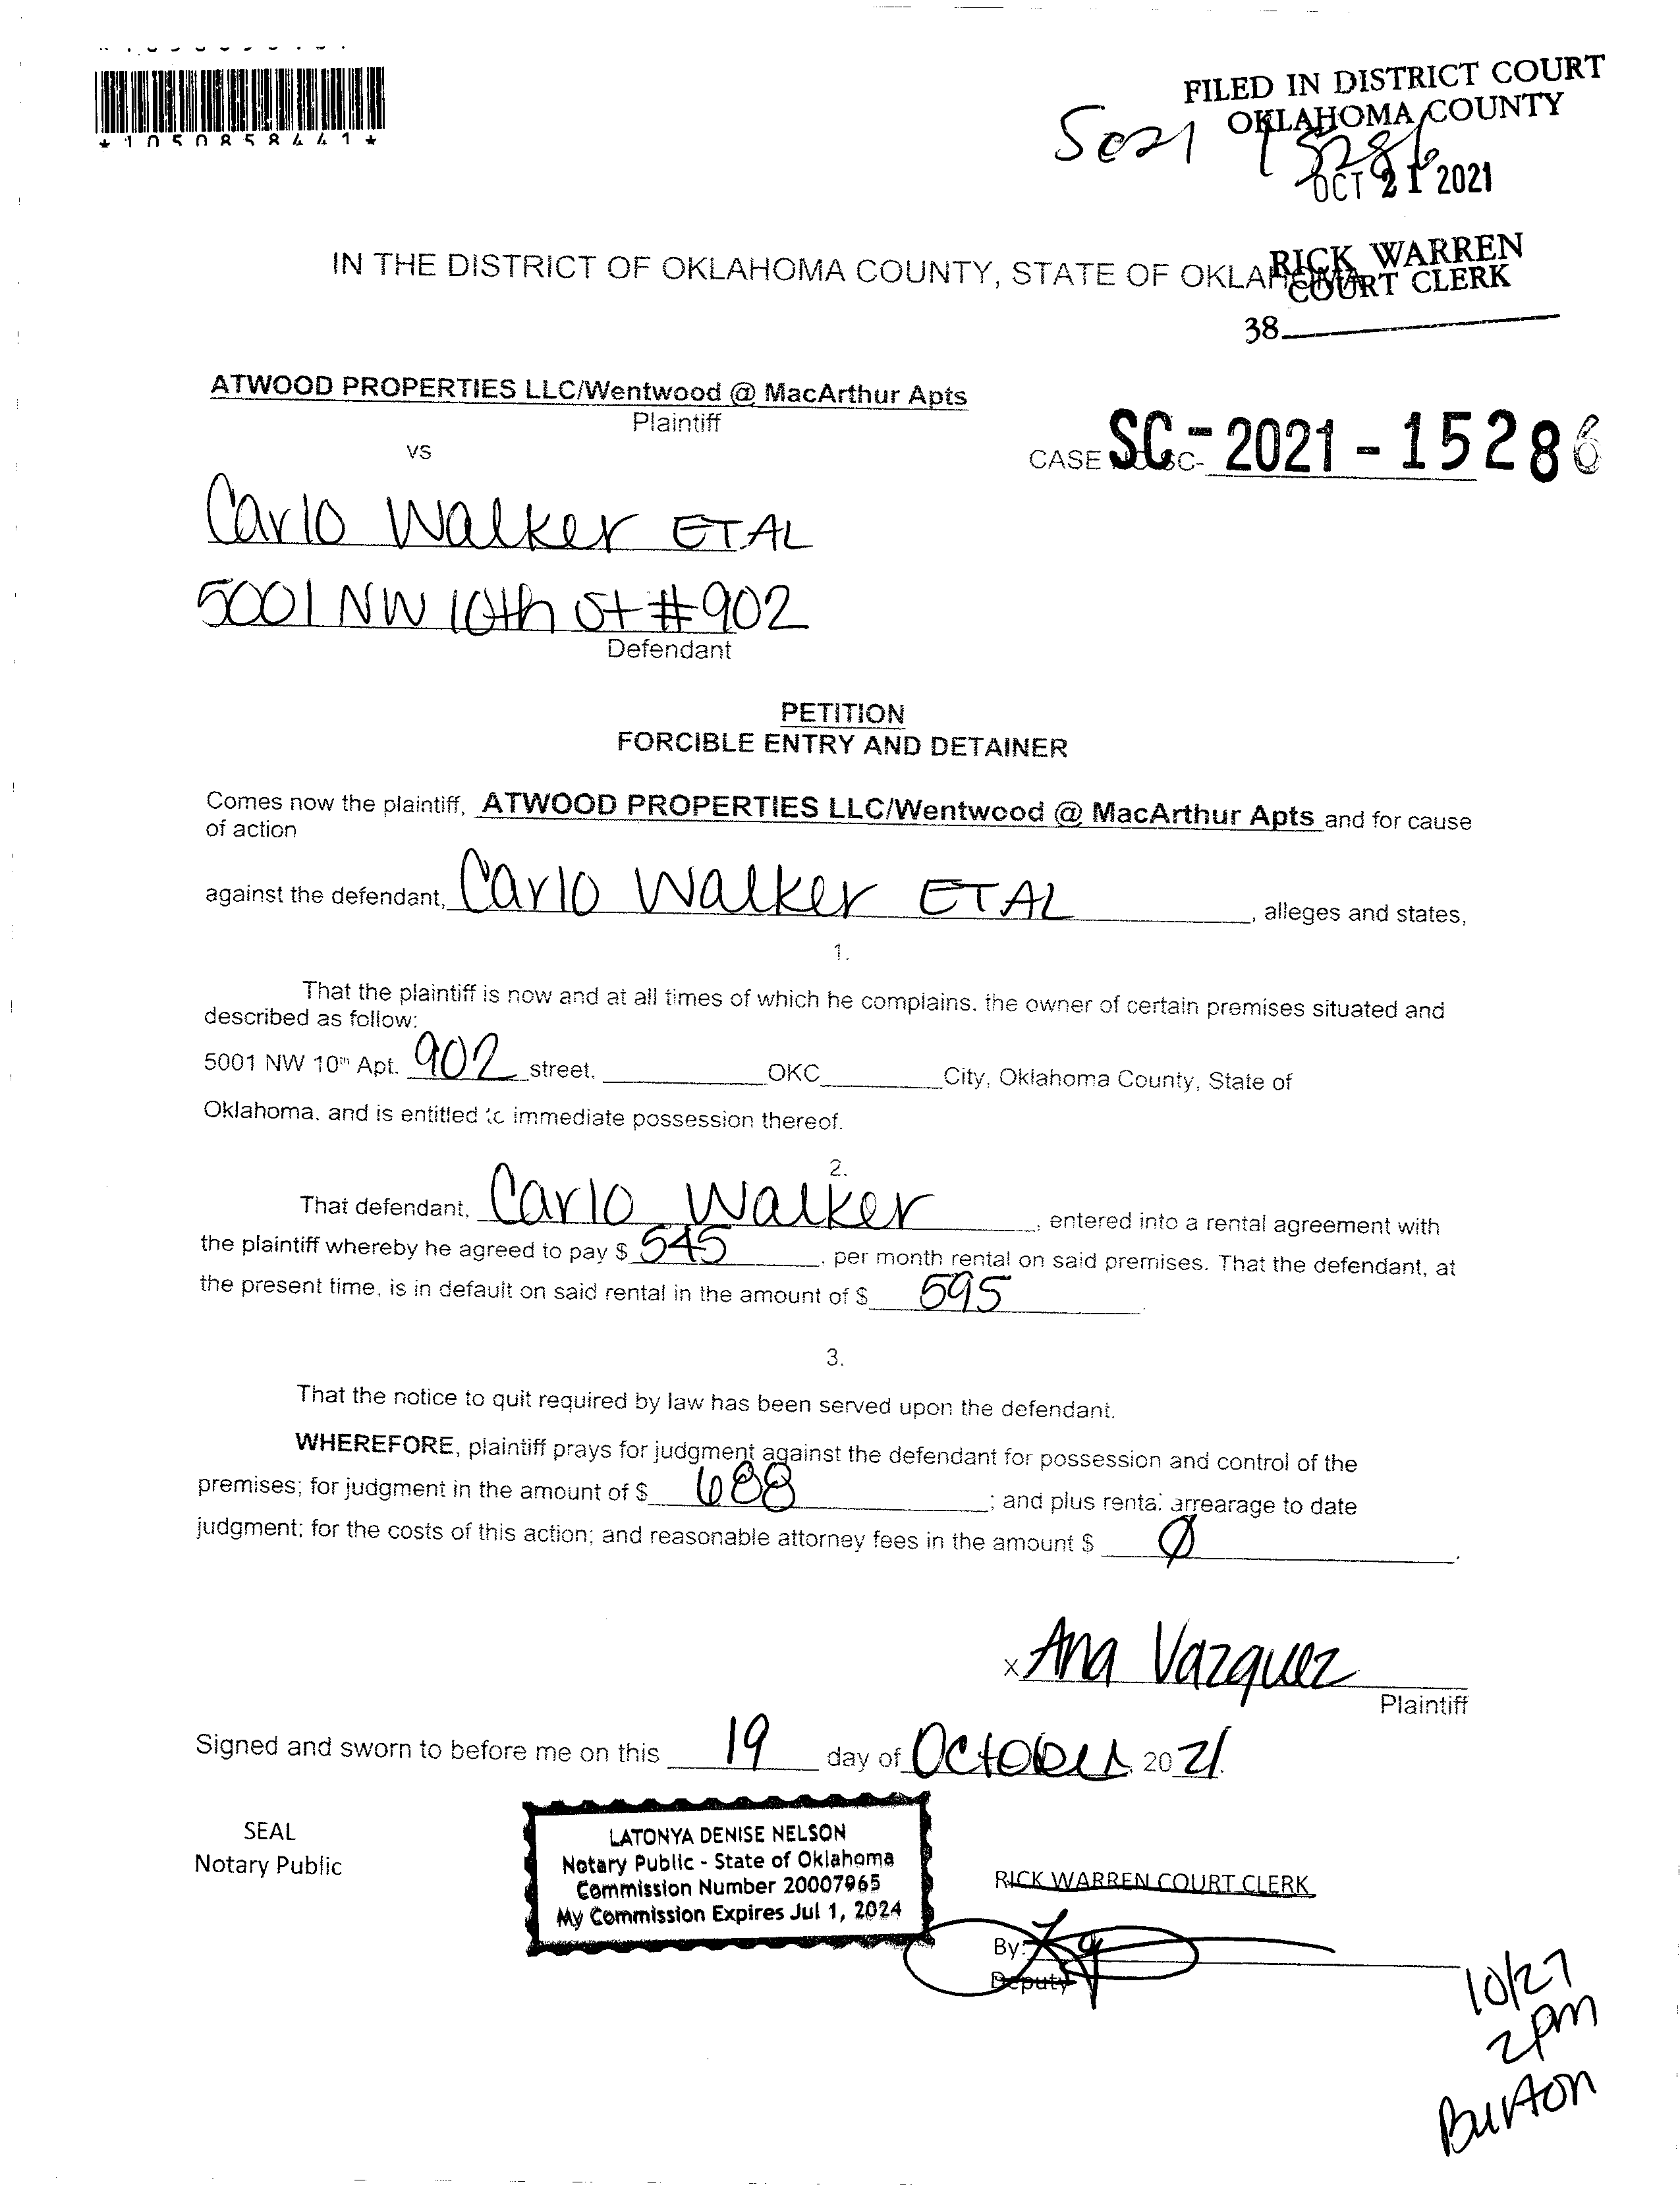 *1050858441*
FILED IN DISTRICT COURT
OKLAHOMA COUNTY
OCT 21 2021
RICK WARREN
COURT CLERK
38
IN THE DISTRICT OF OKLAHOMA COUNTY, STATE OF OKLAHOMA
ATWOOD PROPERTIES LLC/Wentwood @ MacArthur Apts
Plaintiff
vs
CASE SC-2021-15286
Carlo Walker ETAL
5001 NW 10th St #902
Defendant
PETITION
FORCIBLE ENTRY AND DETAINER
Comes now the plaintiff, ATWOOD PROPERTIES LLC/Wentwood @ MacArthur Apts and for cause
of action
against the defendant, Carlo Walker ETAL, alleges and states,
1.
That the plaintiff is now and at all times of which he complains, the owner of certain premises situated and
described as follow:
5001 NW 10th Apt. 902 street, OKC City, Oklahoma County, State of
Oklahoma, and is entitled to immediate possession thereof.
2.
That defendant, Carlo Walker, entered into a rental agreement with
the plaintiff whereby he agreed to pay $ 545, per month rental on said premises. That the defendant, at
the present time, is in default on said rental in the amount of $ 595.
3.
That the notice to quit required by law has been served upon the defendant.
WHEREFORE, plaintiff prays for judgment against the defendant for possession and control of the
premises; for judgment in the amount of $ 688; and plus rental arrearage to date
judgment; for the costs of this action; and reasonable attorney fees in the amount $ Ø.
x Ana Vazquez
Plaintiff
Signed and sworn to before me on this 19 day of October, 2021.
SEAL
Notary Public
LATONYA DENISE NELSON
Notary Public - State of Oklahoma
Commission Number 20007965
My Commission Expires Jul 1, 2024
RICK WARREN COURT CLERK
By:
Deputy
10/27
2pm
Burton